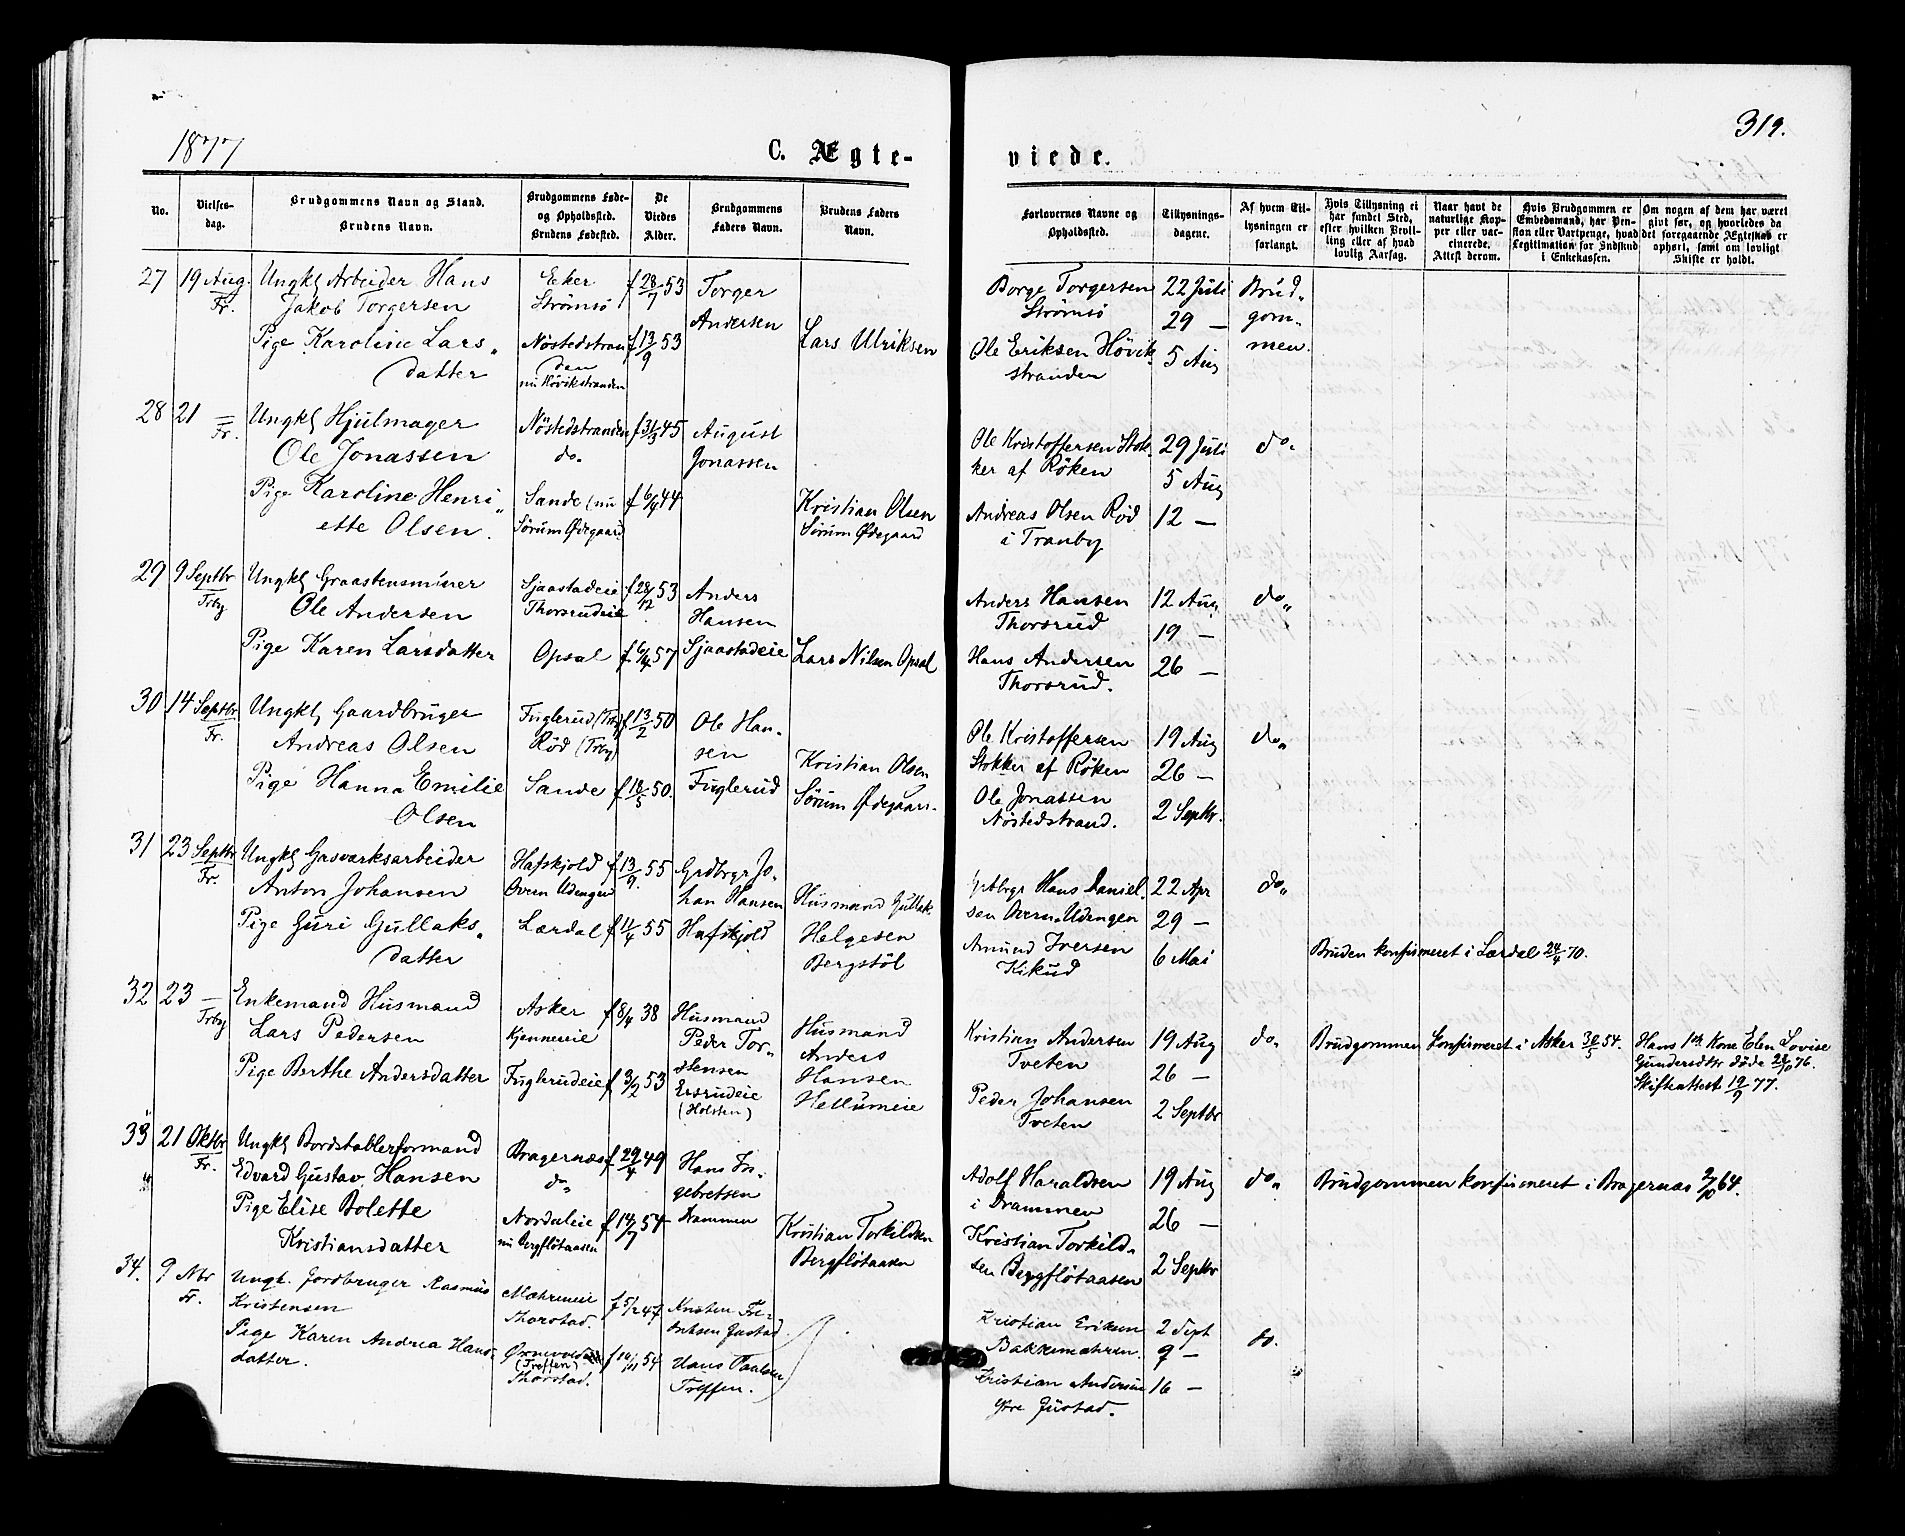 1877
C. Ægte-
viede.
319.
No.
Vielses-
dag.
Brudgommens Navn og Stand.
Brudens Navn.
Brudgommens Føde-
og Opholdssted.
Brudens Fødested.
De
Viedes
Alder.
Brudgommens
Faders Navn.
Brudens Faders
Navn.
Forlovernes Navne og
Opholdssted.
Tillysnings-
dagene.
Af hvem Til-
lysningen er
forlangt.
Hvis Tillysning ei
har fundet Sted,
efter hvilken Bevil-
ling eller af hvad
lovlig Aarsag.
Naar havt de
naturlige Kop-
per eller vac-
cinerede.
Attest derom.
Hvis Brudgommen er
Embedsmand, har Pen-
sion eller Vartpenge, hvad
Legitimation for Indskud
i Enkekassen.
Om nogen af dem har været
givt før, og hvorledes da
det foregaaende Ægteskab er
ophørt, samt om lovligt
Skifte er holdt.
27
19 Aug.
Fr.
Ungkl Arbeider Hans
Jakob Torgersen
Pige Karoline Lars„
datter
Eker
Strömsö
Nöstedstran
den
nu Hövikstranden
f 28/7 53
f 13/9 53
Torger
Andersen
Lars Ulriksen
Borge Torgersen
Strömsö
Ole Eriksen Hövik
stranden
22 Juli
29 —
5 Aug
Brud„
gom„
men.
28
21 —
Fr.
Ungkl Hjulmager
Ole Jonassen
Pige Karoline Henri„
ette Olsen.
Nöstedstranden
do.
Sande (nu
Sörum Ødegaard
f 31/3 45
f 6/4 44
August
Jonassen
Kristian Olsen
Sörum Ødegaard
Ole Kristoffersen Stok„
ker af Röken
Andreas Olsen Röd
i Tranby
29 Juli
5 Aug
12 —
do.
29
9 Septbr
Trby
Ungkl Graastensminer
Ole Andersen
Pige Karen Larsdatter
Sjaastadeie
Thorsrudeie
Opsal
f 28/12 53
f 6/4 57
Anders
Hansen
Sjaastadeie
Lars Nilsen Opsal
Anders Hansen
Thorsrud
Hans Andersen
Thorsrud.
12 Aug
19 —
26 —
do„
30
14 Septbr
Fr.
Ungkl Gaardbruger
Andreas Olsen
Pige Hanna Emilie
Olsen
Fuglerud (Trby)
Röd (Trby)
Sande
f 13/2 50
f 18/5 50.
Ole Han„
sen
Fuglerud
Kristian Olsen
Sörum Ødegaard.
Ole Kristoffersen
Stokker af Röken
Ole Jonassen
Nöstedstrand.
19 Aug
26 —
2 Septbr.
do„
31
23 Septbr
Fr.
Ungkl Gasværksarbeider
Anton Johansen
Pige Guri Gullaks„
datter
Hafskjold
Overn Udengen
Lærdal
f 13/9. 55
f 11/4 55
Grdbrgr Jo„
han Hansen
Hafskjold
Husmand Gullak
Helgesen
Bergstöl
Grdbrgr Hans Daniel„
sen Overn Udengen
Amund Iversen
Kikud
22 Apr
29 —
6 Mai
do„
Bruden konfirmeret i Lærdal 24/4 70.
32
23 —
Trby
Enkemand Husmand
Lars Pedersen
Pige Berthe Andersdatter
Asker
Kjennereie
Fuglerudeie
f 8/4 38
f 3/2 53
Husmand
Peder Tor„
stensen
Ersrudeie
(Holsten)
Husmand
Anders
Hansen
Hellumeie
Kristian Andersen
Tveten
Peder Johansen
Tveten
19 Aug
26 —
2 Septbr
do.
Brudgommen konfirmeret i Asker 30/5 54.
Hans 1ste Kone Elen Lovise
Gundersdtr döde 28/10 76.
Skifteattest 19/9 77.
33
21 Oktbr
Fr.
Ungkl Bordstablerformand
Edvard Gustav Hansen
Pige Elise Bolette
Kristiansdatter
Bragernæs
do„
Nordaleie
nu Bergflötaasen
f 29/4 49
f 14/7 54
Hans In„
gebretsen
Drammen
Kristian Torkildsen
Bergflötaasen
Adolf Haraldsen
i Drammen
Kristian Torkild„
sen Bergflötaasen
19 Aug
26 —
2 Septbr
do„
Brudgommen konfirmeret i Bragernæs 2/10 64.
34.
9 Nbr
Fr.
Ungk. Jordbruger Rasmus
Kristensen
Pige Karen Andrea Hans„
datter.
Mæhrneie
Thorstad.
(Treffen)
Thorstad.
f 5/2 47
f 10/11 54
Hans Paulsen
Treffen.
Kristian Eriksen
Bakkemæhren.
Kristian Andersen
Ytre Justad.
2 Sept
9 —
16 —
do.